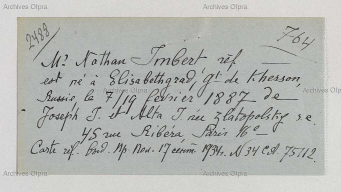 Archives Ofpra Archives Ofpra Archives Ofpra
2488
764
Mr Nathan Imbert réf.
est né à Elisabethgrad, gt de Kherson,
Russie, le 7/19 février 1887 de
Joseph I. et Alta I. née Zlatopolsky s.e.
45 rue Ribéra Paris 16e
Carte réf. 17 1934. N 34 75112.
Archives Ofpra Archives Ofpra Archives Ofpra